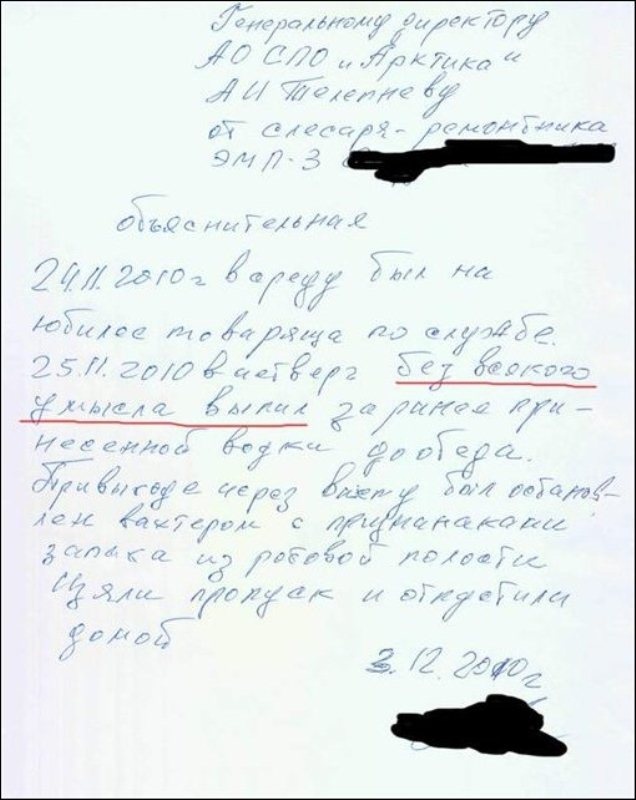 Генеральному директору
АО СПО "Арктика"
АИ Телепневу
от слесаря-ремонтника
ЭМП-3
объяснительная
24.11.2010г в среду был на
юбилее товаряща по службе.
25.11.2010 в четверг без всякого
умысла выпил заринее при-
несенной водки до обеда.
Привыходе через вахту был останов-
лен вахтером с признанаками
запаха из ротовой полости
Изяли пропуск и отпустили
домой
3.12.2010г